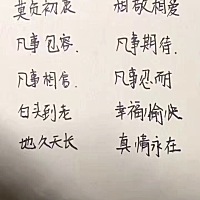 莫负初衷 相敬相爱
凡事包容. 凡事期待.
凡事相信. 凡事忍耐
白头到老 幸福愉快
地久天长 真情永在